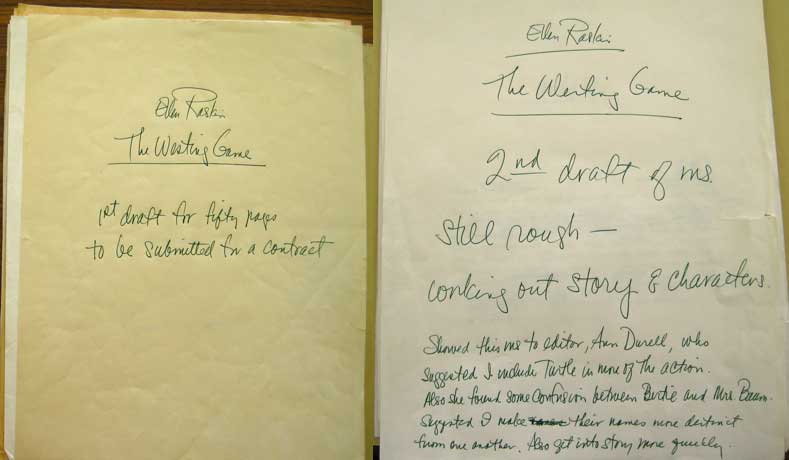 Ellen Raskin
The Westing Game
1st draft for fifty pages
to be submitted for a contract
Ellen Raskin
The Westing Game
2nd draft of ms.
still rough —
working out story & characters.
Showed this ms to editor, Ann Durell, who
suggested I include Turtle in more of the action.
Also she found some confusion between Bertie and Mrs. Baum.
Suggested I make their names more distinct
from one another. Also get into story more quickly.